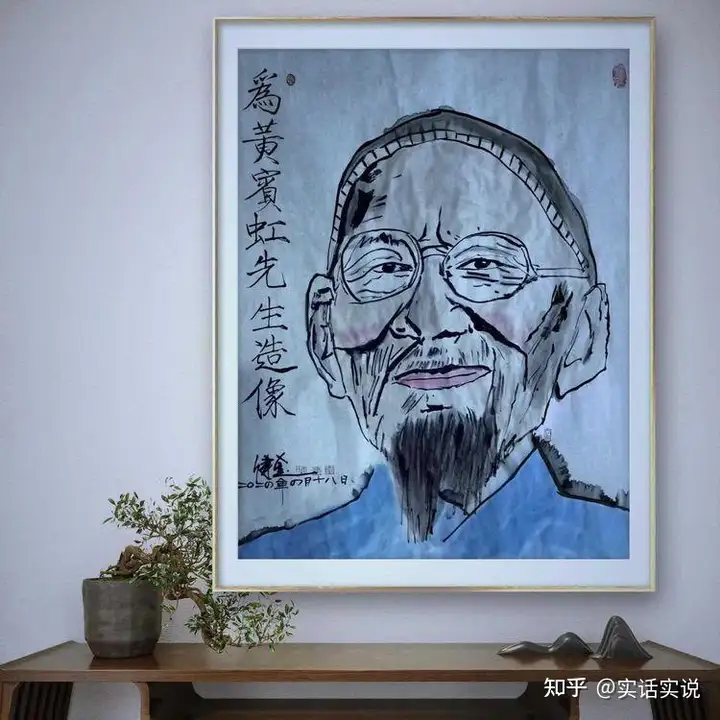 爲黃賓虹先生造像
二〇二〇年四月十八日
知乎 @实话实说